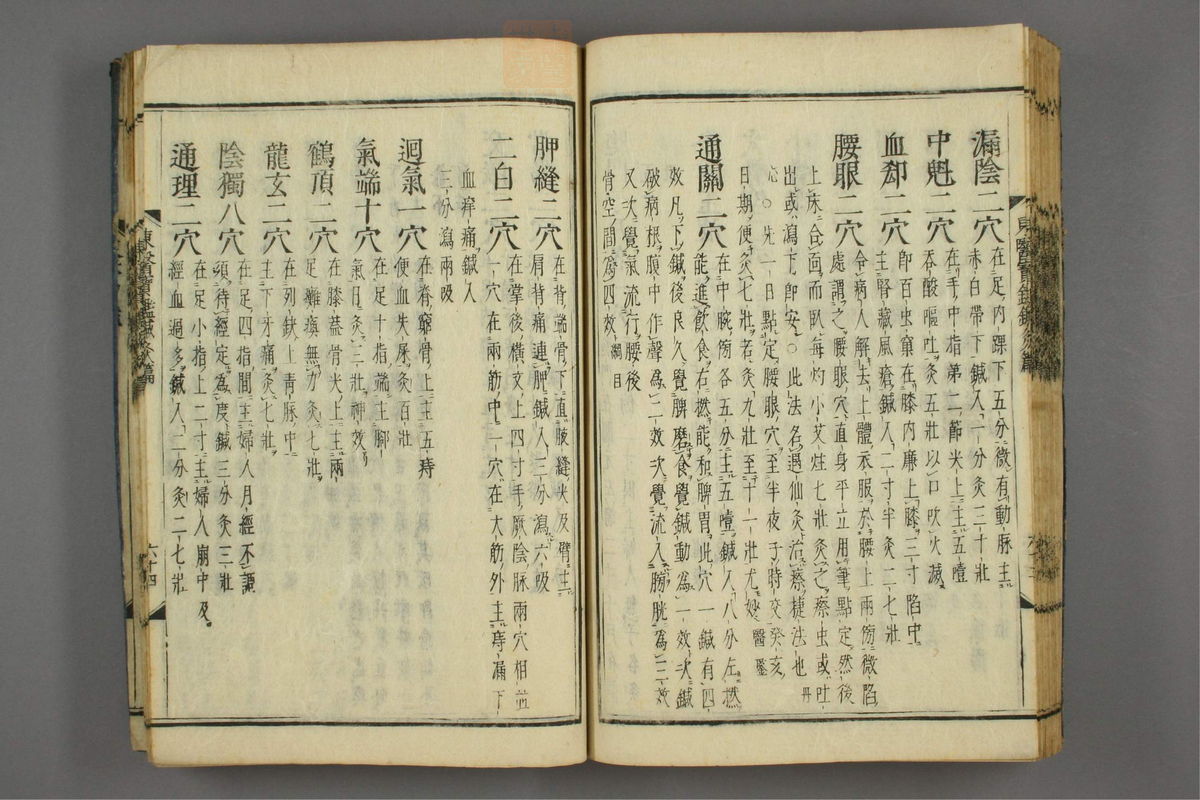 漏陰二穴
在足內踝下五分微有動脉主
赤白帶下鍼入一分灸三十壯
中魁二穴
在手中指第二節尖上主五噎
吞酸嘔吐灸五壯以口吹火滅
血郄二穴
即百虫窠在膝內廉上膝三寸陷中
主腎藏風瘡鍼入二寸半灸二七壯
腰眼二穴
令病人解去上體衣服於腰上兩傍微陷
處謂之腰眼穴直身平立用筆點定然後
上床合面而臥每灼小艾炷七壯灸之瘵虫或吐
出或瀉下即安○此法名遇仙灸治瘵捷法也丹
心○先一日點定腰眼穴至半夜子時交癸亥
日期便灸七壯若灸九壯至十一壯尤妙醫鑒
通關二穴
在中脘傍各五分主五噎鍼入八分左撚
能進飲食右撚能和脾胃此穴一鍼有四
效凡下鍼後良久覺脾磨食覺鍼動為一效次鍼
破病根腹中作聲為二效次覺流入膀胱為三效
又次覺氣流行腰後
骨空間為四效綱目
胛縫二穴
在背端骨下直腋縫尖及臂主
肩背痛連胛鍼入三分瀉六吸
二白二穴
在掌後橫文上四寸手厥陰脉兩穴相並
一穴在兩筋中一穴在大筋外主痔漏下
血痒痛鍼入
三分瀉兩吸
迴氣一穴
在脊窮骨上主五痔
便血失尿灸百壯
氣端十穴
在足十指端主脚
氣日灸三壯神效
鶴頂二穴
在膝蓋骨尖上主兩
足癱瘓無力灸七壯
龍玄二穴
在列缺上青脉中
主下牙痛灸七壯
陰獨八穴
在足四指間主婦人月經不調
須待經定為度鍼三分灸三壯
通理二穴
在足小指上二寸主婦人崩中及
經血過多鍼入二分灸二七壯
東醫寶鑑鍼灸篇
六十四